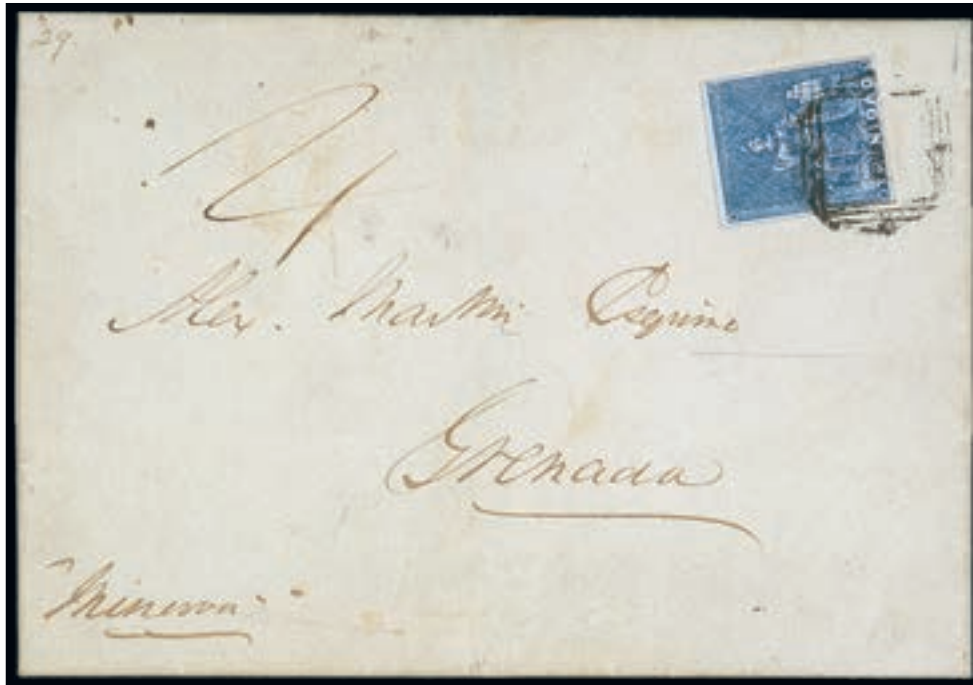 29.
4
Alex. Martin Esquire
Grenada
"Minerva"